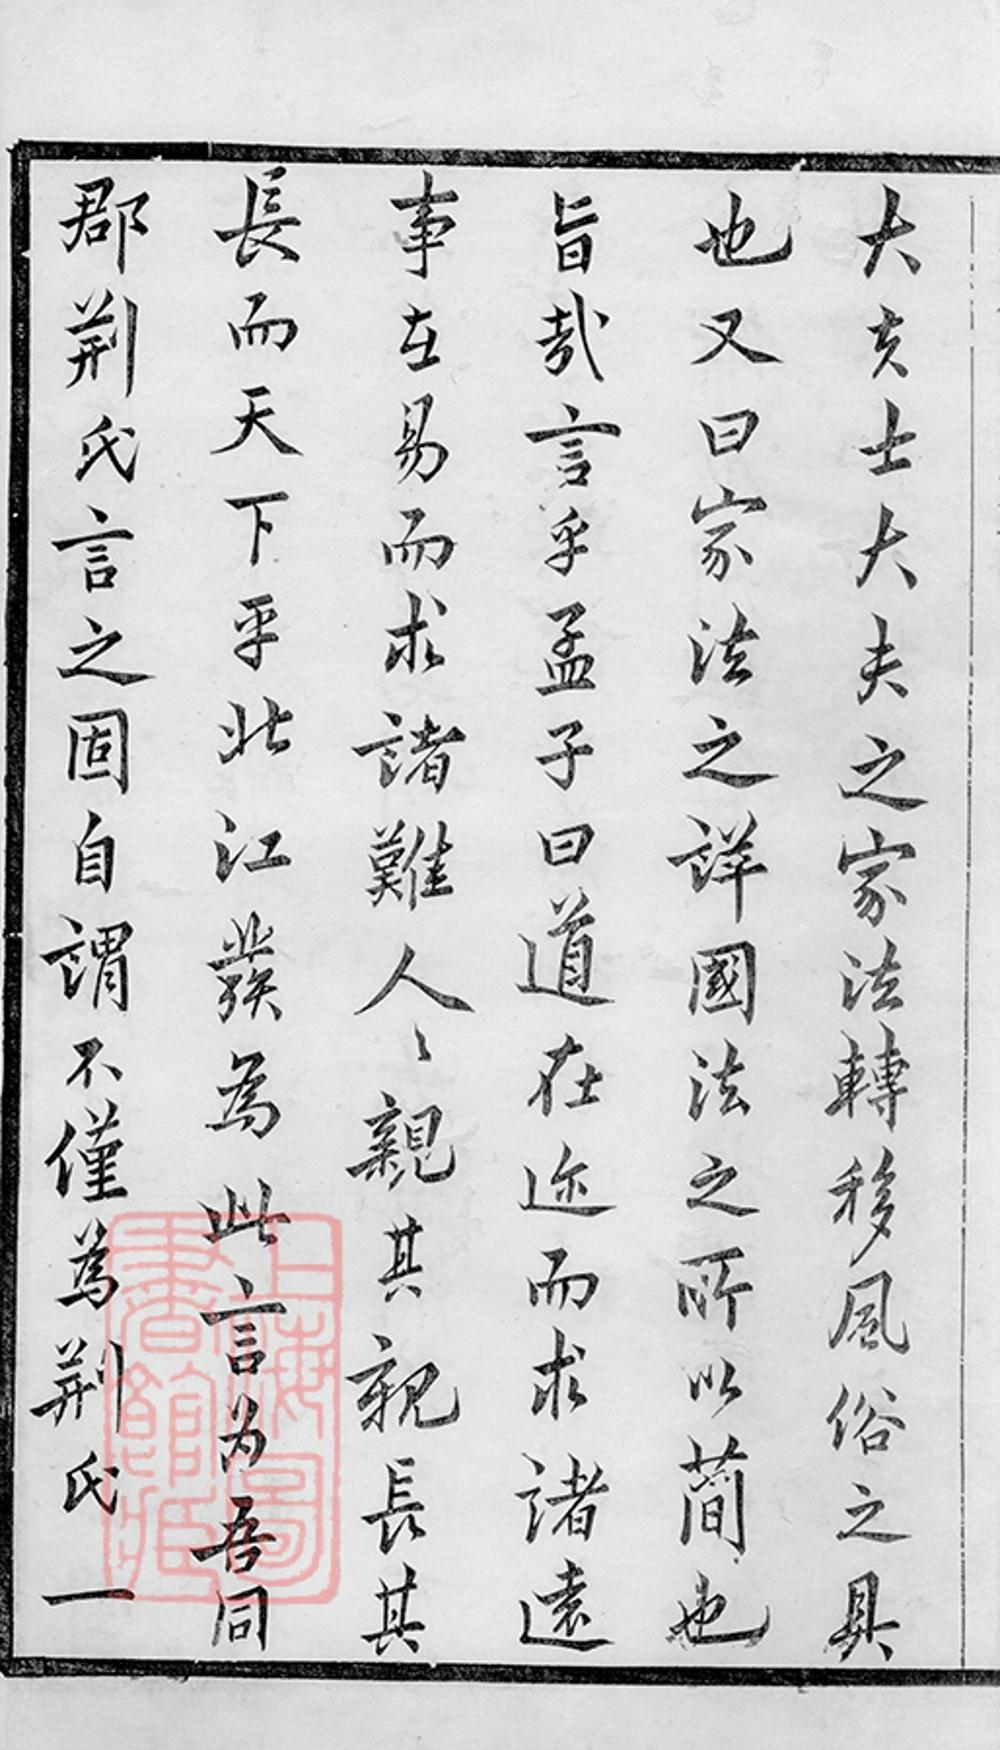 大夫士大夫之家法轉移風俗之具
也又曰家法之詳國法之所以簡也
旨哉言乎孟子曰道在迩而求諸遠
事在易而求諸難人〻親其親長其
長而天下平北江發為此言为吾同
郡荆氏言之固自謂不僅為荆氏一
上海圖書館藏